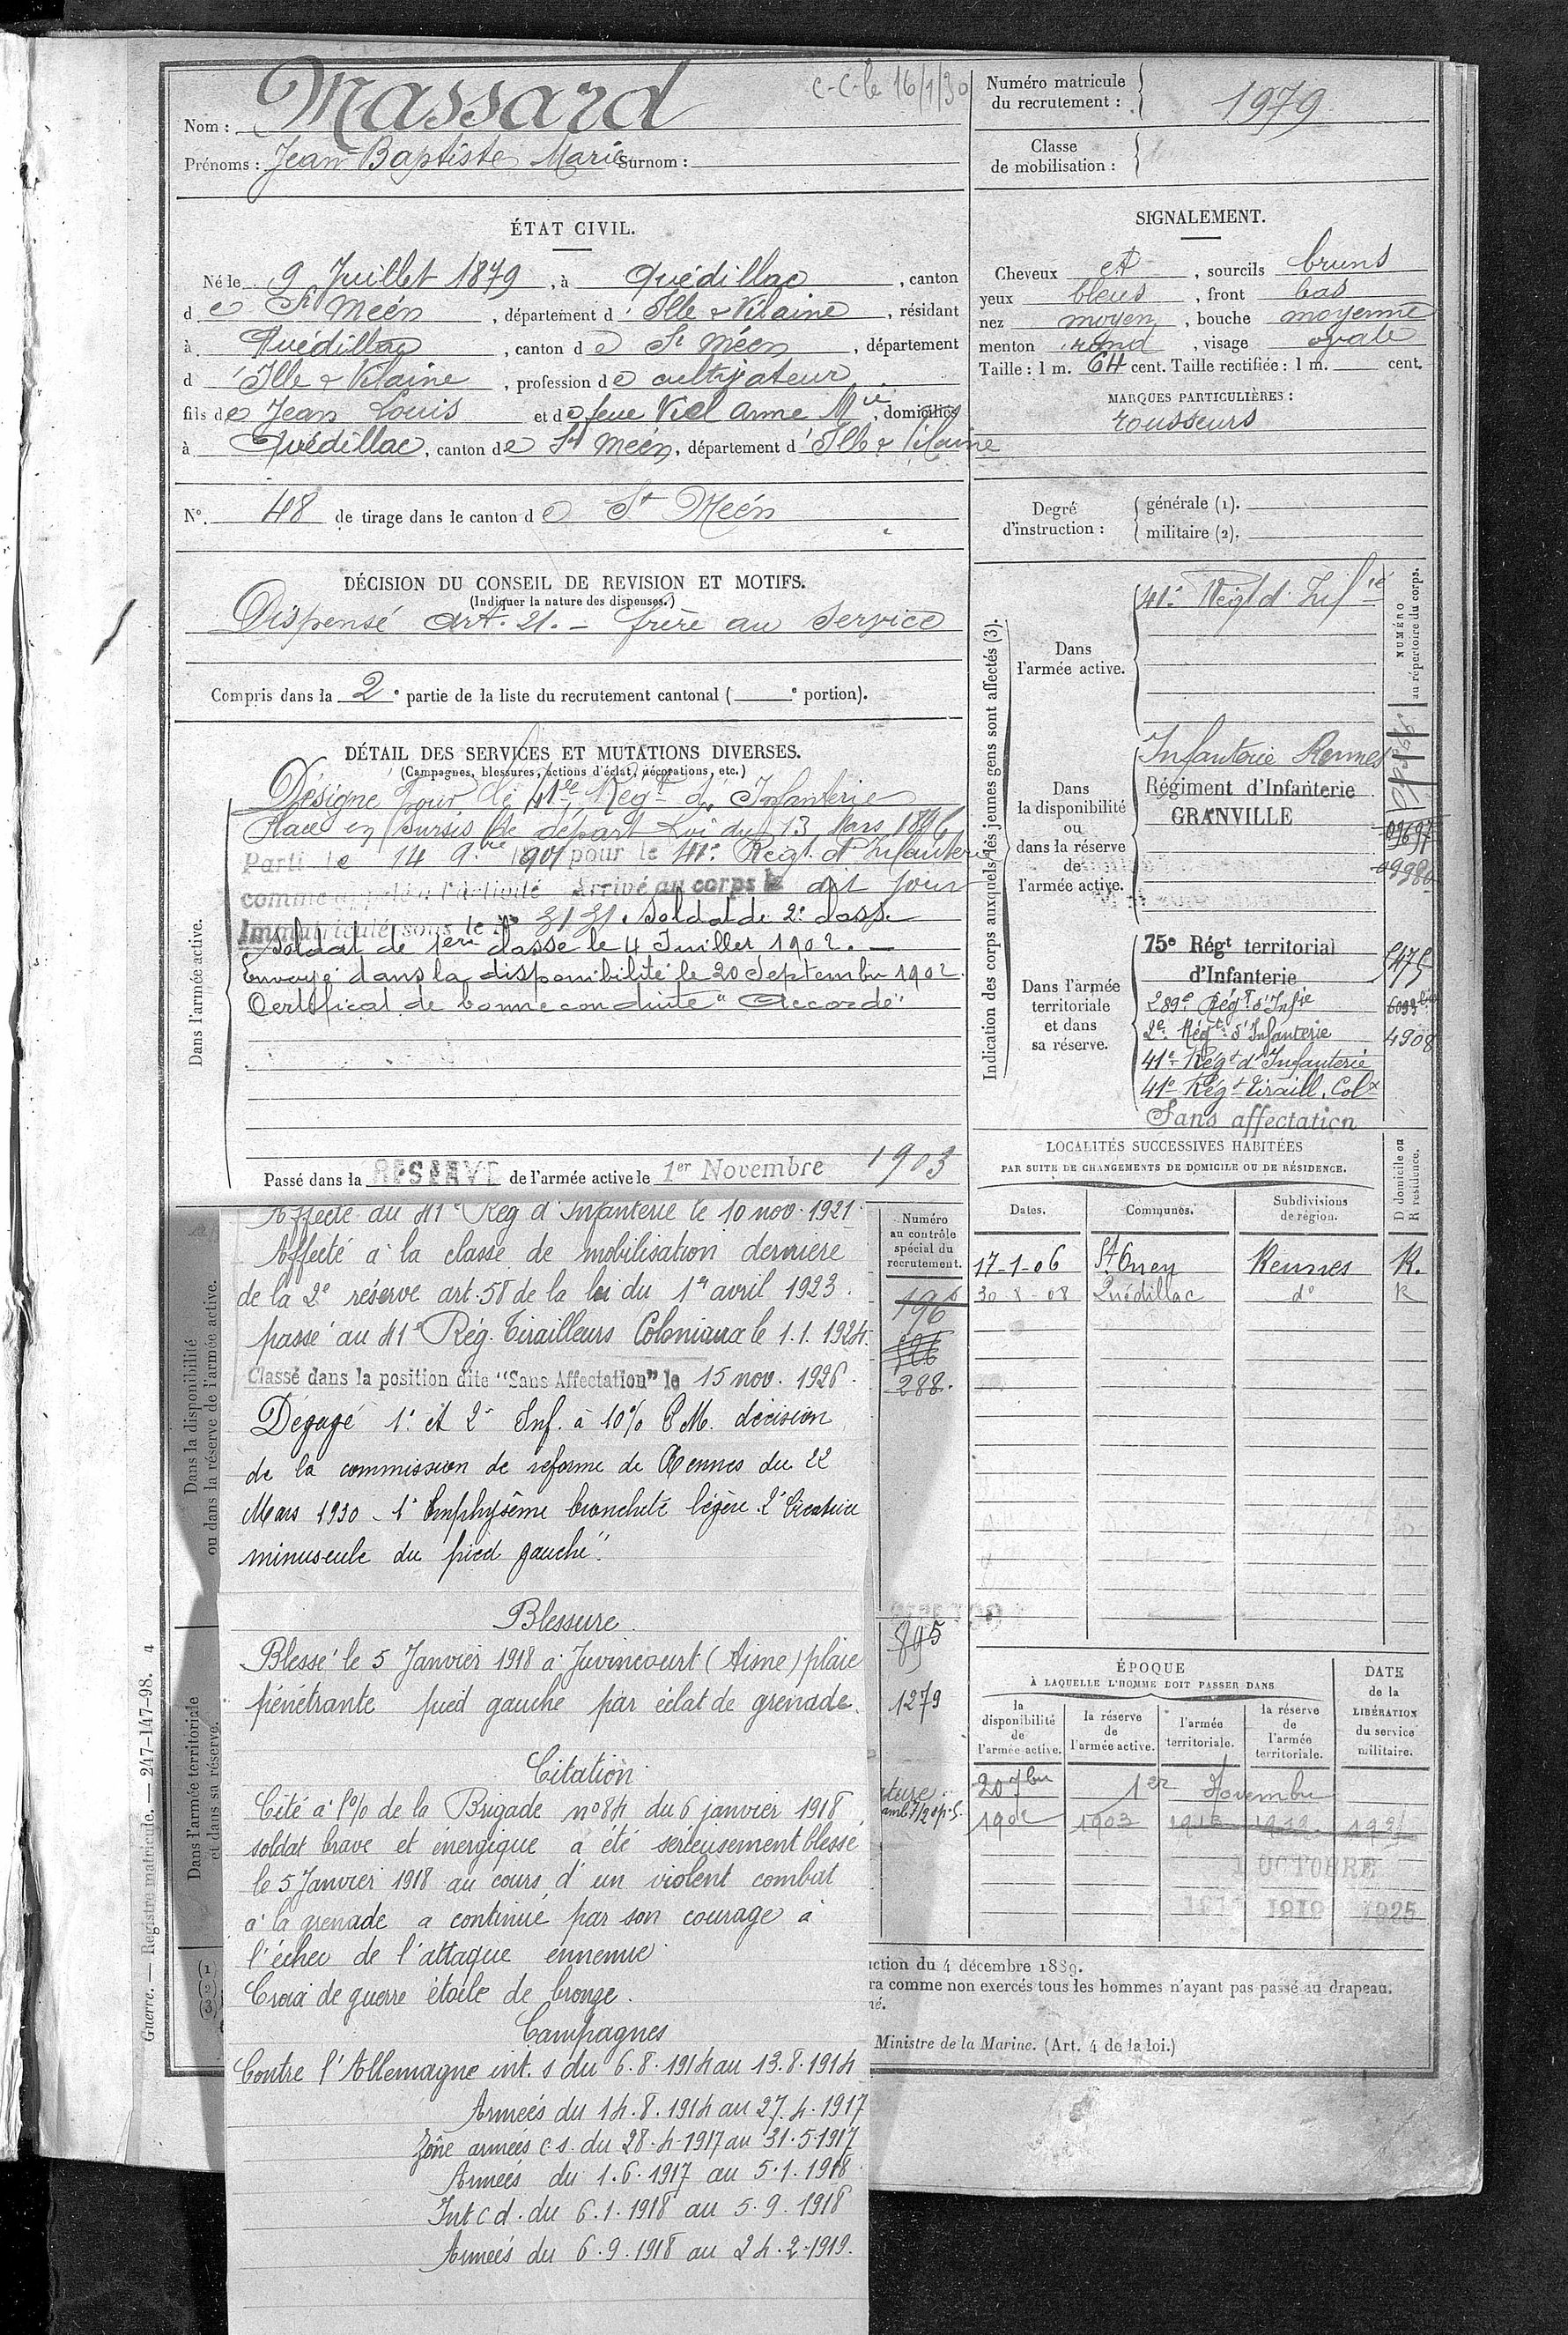 Massard
C-C-le 16/1/30
Nom :
Prénoms : Jean Baptiste Marie Surnom :
Numéro matricule du recrutement : 1979
Classe de mobilisation :
ÉTAT CIVIL.
Né le 9 Juillet 1879, à Quédillac, canton
de St Méen, département d'Ille & Vilaine, résidant
à Quédillac, canton de St Méen, département
d'Ille & Vilaine, profession de cultivateur
fils de Jean Louis et de feue Viel Anne Mie, domiciliés
à Quédillac, canton de St Méen, département d'Ille & Vilaine
No. 48 de tirage dans le canton de St Méen
DÉCISION DU CONSEIL DE REVISION ET MOTIFS.
(Indiquer la nature des dispenses.)
Dispensé Art. 21. - frère au service
Compris dans la 2e partie de la liste du recrutement cantonal ( e portion).
DÉTAIL DES SERVICES ET MUTATIONS DIVERSES.
(Campagnes, blessures, actions d'éclat, décorations, etc.)
Dans l'armée active.
Désigné pour le 41e Regt d'Infanterie
Placé en sursis de départ Loi du 13 Mars 1896
Parti le 14 9bre 1901 pour le 41e Régt d'Infanterie
comme appelé à l'activité Arrivé au corps le dit jour
Immatriculé sous le No 3131. Soldat de 2e classe
Soldat de 1ère classe le 4 Juillet 1902. —
Envoyé dans la disponibilité le 20 Septembre 1902.
Certificat de bonne conduite "Accordé"
Passé dans la RESERVE de l'armée active le 1er Novembre 1903
Dans la disponibilité ou dans la réserve de l'armée active.
Affecté au 41e Rég d'Infanterie le 10 nov. 1921.
Affecté à la classe de mobilisation dernière
de la 2e réserve art. 58 de la loi du 1er avril 1923.
passé au 41e Rég. Tirailleurs Coloniaux le 1.1.1924.
Classé dans la position dite "Sans Affectation" le 15 nov. 1926.
Dégagé 1° et 2° Inf. à 10% P.M. décision
de la commission de reforme de Rennes du 22
Mars 1930 - 1° Emphysême bronchite légère. 2° Cicatrice
minuscule du pied gauche".
Blessure.
Blessé le 5 Janvier 1918 à Juvincourt (Aisne) plaie
pénétrante pied gauche par éclat de grenade.
Citation
Cité à l'o/o de la Brigade no 84 du 6 janvier 1918
soldat brave et énergique a été sérieusement blessé
le 5 Janvier 1918 au cours d'un violent combat
à la grenade a continué par son courage à
l'échec de l'attaque ennemie.
Croix de guerre étoile de bronze.
Campagnes
Contre l'Allemagne int. s du 6.8.1914 au 13.8.1914
Armées du 14.8.1914 au 27.4.1917
Zône armées c.s. du 28.4.1917 au 31.5.1917
Armées du 1.6.1917 au 5.1.1918
Int c d. du 6.1.1918 au 5.9.1918
Armées du 6.9.1918 au 24.2.1919.
Dans l'armée territoriale et dans sa réserve.
Guerre. — Registre matricule. — 247-147-98. a
Numéro au contrôle spécial du recrutement.
196
288.
895
1279
SIGNALEMENT.
Cheveux et, sourcils bruns
yeux bleus, front bas
nez moyen, bouche moyenne
menton rond, visage ovale
Taille : 1 m. 64 cent. Taille rectifiée : 1 m. cent.
MARQUES PARTICULIÈRES :
rousseurs
Degré d'instruction :
générale (1).
militaire (2).
Indication des corps auxquels les jeunes gens sont affectés (3).
NUMÉRO au répertoire du corps.
Dans l'armée active.
41e Régt d'Infie
Dans la disponibilité ou dans la réserve de l'armée active.
Infanterie Rennes
Régiment d'Infanterie
GRANVILLE
Dans l'armée territoriale et dans sa réserve.
75e Régt territorial
d'Infanterie
289e Régt d'Infie
2e Régt d'Infanterie 4908
41e Régt d'Infanterie
41e Régt Tiraill. Colx
Sans affectation
LOCALITÉS SUCCESSIVES HABITÉES
PAR SUITE DE CHANGEMENTS DE DOMICILE OU DE RÉSIDENCE.
Dates. Communes. Subdivisions de région. D domicile ou R résidence.
17-1-06 St Onen Rennes R.
30-8-08 Quédillac do R
ÉPOQUE
À LAQUELLE L'HOMME DOIT PASSER DANS
la disponibilité de l'armée active. la réserve de l'armée active. l'armée territoriale. la réserve de l'armée territoriale.
DATE de la LIBÉRATION du service militaire.
20 7bre 1er Novembre
1902 1903 1913 1919 1921
1 OCTOBRE
1919 1925
ction du 4 décembre 1889.
ra comme non exercés tous les hommes n'ayant pas passé au drapeau.
né.
Ministre de la Marine. (Art. 4 de la loi.)